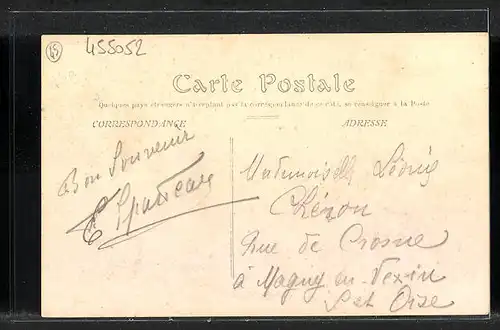 45
455052
Carte Postale
Quelques pays étrangers n'acceptant pas la correspondance de ce côté, se renseigner à la Poste
CORRESPONDANCE
ADRESSE
Bon Souvenir
Mademoiselle
Rue de Crosne
à Magny en Vexin
S et Oise